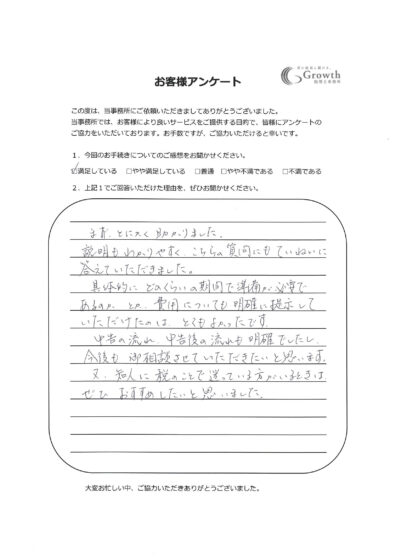 お客様アンケート
Growth
税理士事務所
この度は、当事務所にご依頼いただきましてありがとうございました。
当事務所では、お客様により良いサービスをご提供する目的で、皆様にアンケートの
ご協力をいただいております。お手数ですが、ご協力いただけると幸いです。
１．今回のお手続きについてのご感想をお聞かせください。
☑満足している　□やや満足している　□普通　□やや不満である　□不満である
２．上記１でご回答いただけた理由を、ぜひお聞かせください。
まず、とにかく助かりました。
説明もわかりやすく、こちらの質問にもていねいに
答えていただきました。
具体的に どのくらいの期間で準備が必要で
あるのか とか、費用についても明確に提示して
いただけたのは、とてもよかったです。
申告の流れ、申告後の流れも明確でしたし、
今後も 御相談させていただきたいと思います。
又、知人に税のことで迷っている方がいるときは、
ぜひ おすすめしたいと思いました。
大変お忙しい中、ご協力いただきありがとうございました。